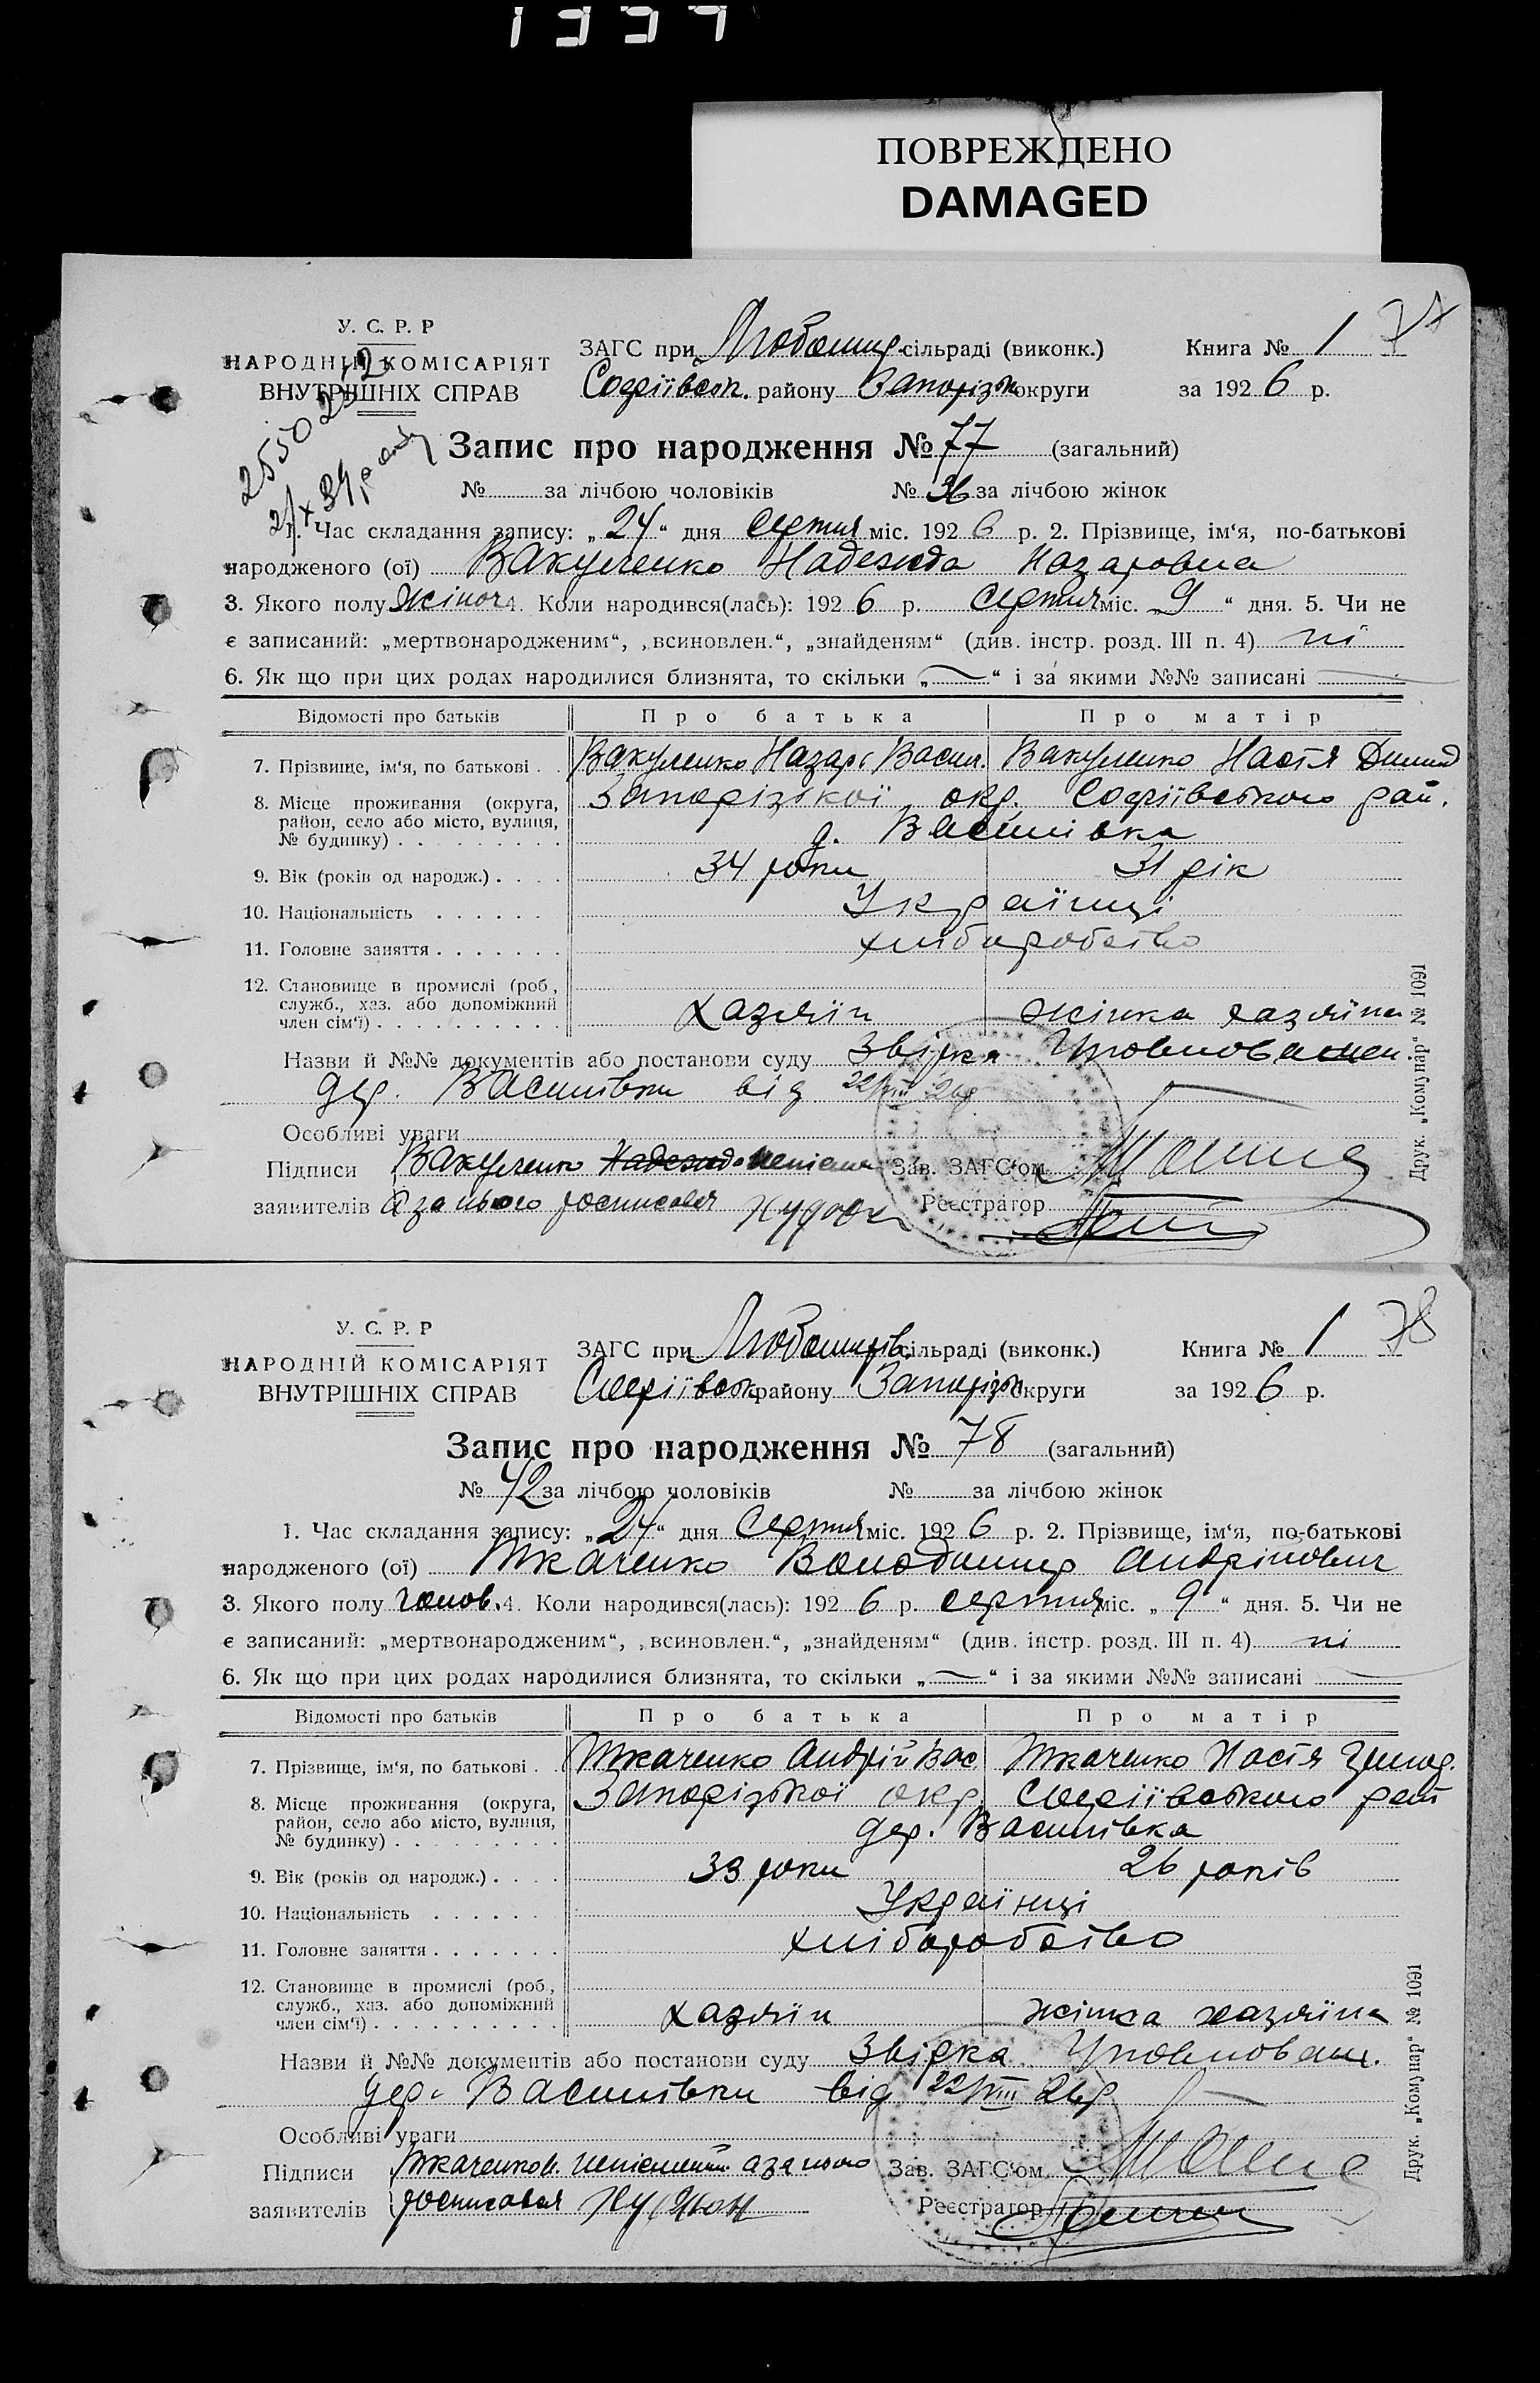 1339
ПОВРЕЖДЕНО
DAMAGED
У. С. Р. Р
НАРОДНІЙ КОМІСАРІЯТ
ВНУТРІШНІХ СПРАВ
ЗАГС при Любомир. сільраді (виконк.) Книга № 1 77
Софіївськ. району Запорізьк округи за 1926 р.
Запис про народження № 77 (загальний)
№ за лічбою чоловіків № 36 за лічбою жінок
1. Час складання запису: „24“ дня Серпня міс. 1926 р. 2. Прізвище, ім‘я, по-батькові
народженого (ої) Вакуленко Надежда Назаровна
3. Якого полу жіноч 4. Коли народився(лась): 1926 р. Серпня міс. „9“ дня. 5. Чи не
є записаний: „мертвонародженим“, „всиновлен.“, „знайденям“ (див. інстр. розд. III п. 4) ні
6. Як що при цих родах народилися близнята, то скільки „—“ і за якими №№ записані —
Відомості про батьків Про батька Про матір
7. Прізвище, ім‘я, по батькові Вакуленко Назар Васил. Вакуленко Настя
8. Місце проживання (округа, район, село або місто, вулиця, № будинку) Запорізької окр. Софіївського рай.
д. Василівка
9. Вік (років од народж.) 34 роки 31 рік
10. Національність Українці
11. Головне заняття хліборобство
12. Становище в промислі (роб., служб., хаз. або допоміжний член сім‘ї) хазяїн жінка хазяїна
Назви й №№ документів або постанови суду Звірка Уповноважен
дер. Василівки від 22/VIII 26р
Особливі уваги
Підписи Вакуленко Надежд неписьмен Зав. ЗАГС‘ом
заявителів а за нього росписався Реєстратор
Друк. „Комунар“ № 1091
У. С. Р. Р
НАРОДНІЙ КОМІСАРІЯТ
ВНУТРІШНІХ СПРАВ
ЗАГС при Любомирів. сільраді (виконк.) Книга № 1 78
Софіївськ району Запорізьк округи за 1926 р.
Запис про народження № 78 (загальний)
№ 42 за лічбою чоловіків № за лічбою жінок
1. Час складання запису: „24“ дня Серпня міс. 1926 р. 2. Прізвище, ім‘я, по-батькові
народженого (ої) Ткаченко Володимир Андрійович
3. Якого полу чолов. 4. Коли народився(лась): 1926 р. серпня міс. „9“ дня. 5. Чи не
є записаний: „мертвонародженим“, „всиновлен.“, „знайденям“ (див. інстр. розд. III п. 4) ні
6. Як що при цих родах народилися близнята, то скільки „—“ і за якими №№ записані —
Відомості про батьків Про батька Про матір
7. Прізвище, ім‘я, по батькові Ткаченко Андрій Вас. Ткаченко Настя
8. Місце проживання (округа, район, село або місто, вулиця, № будинку) Запорізької окр. Софіївського рай
дер. Василівка
9. Вік (років од народж.) 33 роки 26 років
10. Національність Українці
11. Головне заняття хліборобство
12. Становище в промислі (роб., служб., хаз. або допоміжний член сім‘ї) хазяїн жінка хазяїна
Назви й №№ документів або постанови суду Звірка Уповноваж.
дер. Василівки від 22/VIII 26р
Особливі уваги
Підписи Ткаченко неписьменний а за нього Зав. ЗАГС‘ом
заявителів росписався Реєстратор
Друк. „Комунар“ № 1091